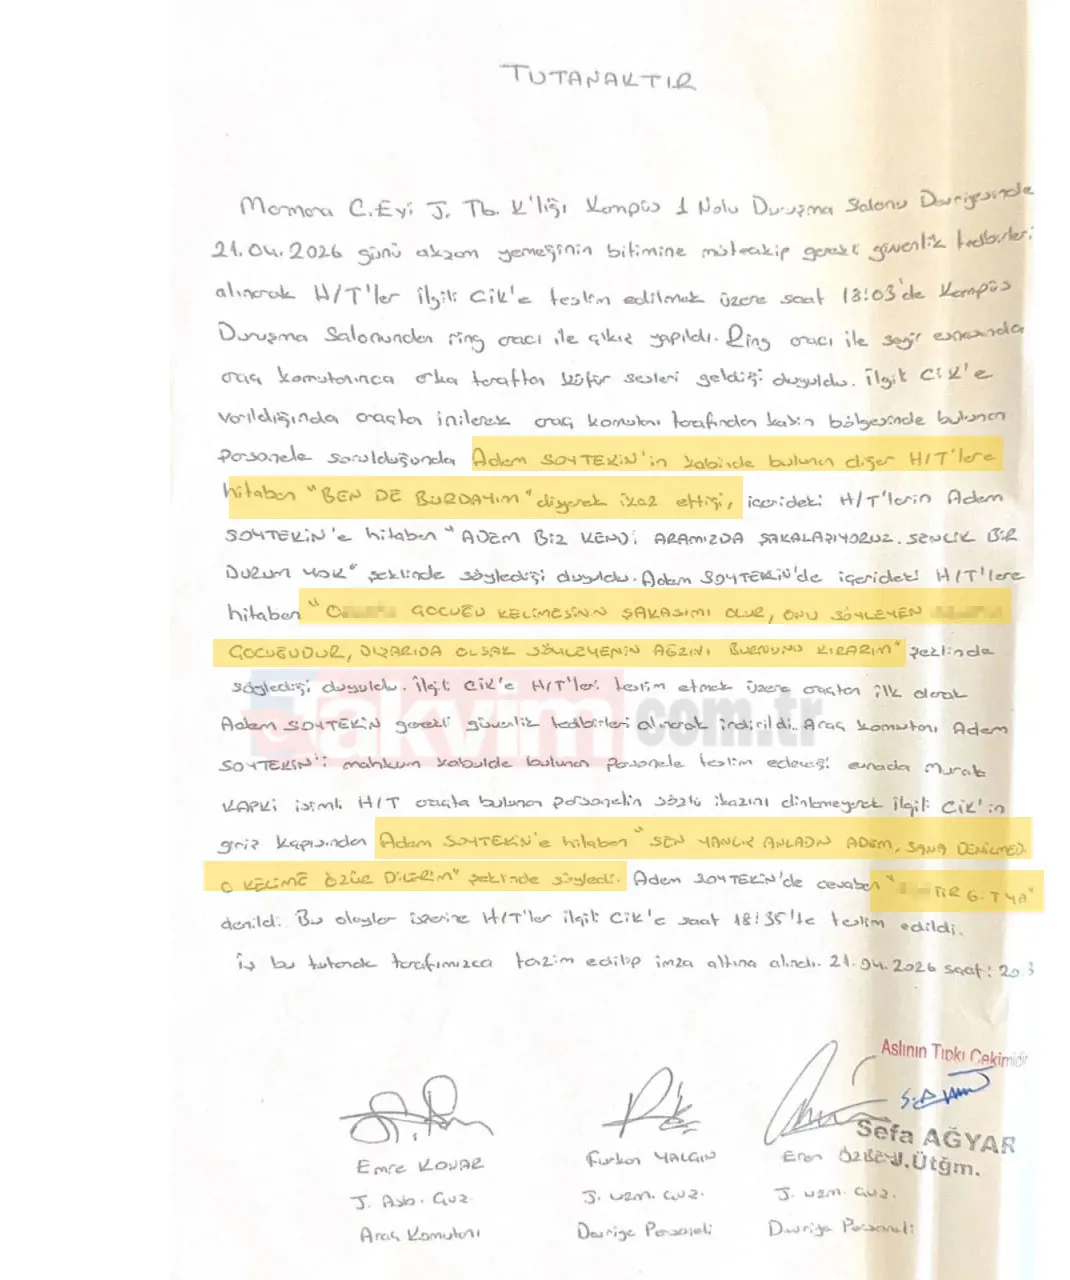 TUTANAKTIR
Marmara C.Evi J. Tb. K'lığı Kampüs 1 Nolu Duruşma Salonu Devriyesinde
21.04.2026 günü akşam yemeğinin bitimine müteakip gerekli güvenlik tedbirleri
alınarak H/T'ler ilgili CİK'e teslim edilmek üzere saat 18:03'de Kampüs
Duruşma Salonundan ring aracı ile çıkış yapıldı. Ring aracı ile seyir esnasında
araç komutanınca arka taraftan küfür sesleri geldiği duyuldu. İlgili CİK'e
varıldığında araçtan inilerek araç komutanı tarafından kabin bölgesinde bulunan
personele sorulduğunda Adem SOYTEKİN'in kabinde bulunan diğer H/T'lere
hitaben "BEN DE BURDAYIM" diyerek ikaz ettiği, içerideki H/T'lerin Adem
SOYTEKİN'e hitaben "ADEM BİZ KENDİ ARAMIZDA ŞAKALAŞIYORUZ. SENLİK BİR
DURUM YOK" şeklinde söylediği duyuldu. Adem SOYTEKİN'de içerideki H/T'lere
hitaben "O GOCUĞU KELİMESİNN ŞAKASIMI OLUR, ONU SÖYLEYEN
GOCUĞUDUR, DIŞARIDA OLSAK SÖYLEYENİN AĞZINI BURNUNU KIRARIM" şeklinde
söylediği duyuldu. İlgili CİK'e H/T'leri teslim etmek üzere araçtan ilk olarak
Adem SOYTEKİN gerekli güvenlik tedbirleri alınarak indirildi. Araç komutanı Adem
SOYTEKİN'i mahkum kabulde bulunan personele teslim edeceği esnada Murat
KAPKİ isimli H/T araçta bulunan personelin sözlü ikazını dinlemeyerek ilgili CİK'in
giriş kapısından Adem SOYTEKİN'e hitaben "SEN YANLIŞ ANLADIN ADEM, SANA DENİLMEDİ
O KELİME ÖZÜR DİLERİM" şeklinde söyledi. Adem SOYTEKİN'de cevaben " TİR G.T YA"
denildi. Bu olaylar üzerine H/T'ler ilgili CİK'e saat 18:35'te teslim edildi.
İş bu tutanak tarafımızca tazim edilip imza altına alındı. 21.04.2026 saat: 20.3
takvim.com.tr
Aslının Tıpkı Çekimidir
Sefa AĞYAR
J.Ütğm.
Emre KONAR Furkan YALGIN Eren ÖZBEY
J. Asb. Gvz. J. uzm. Gvz. J. uzm. Gvz.
Araç Komutanı Devriye Personeli Devriye Personeli